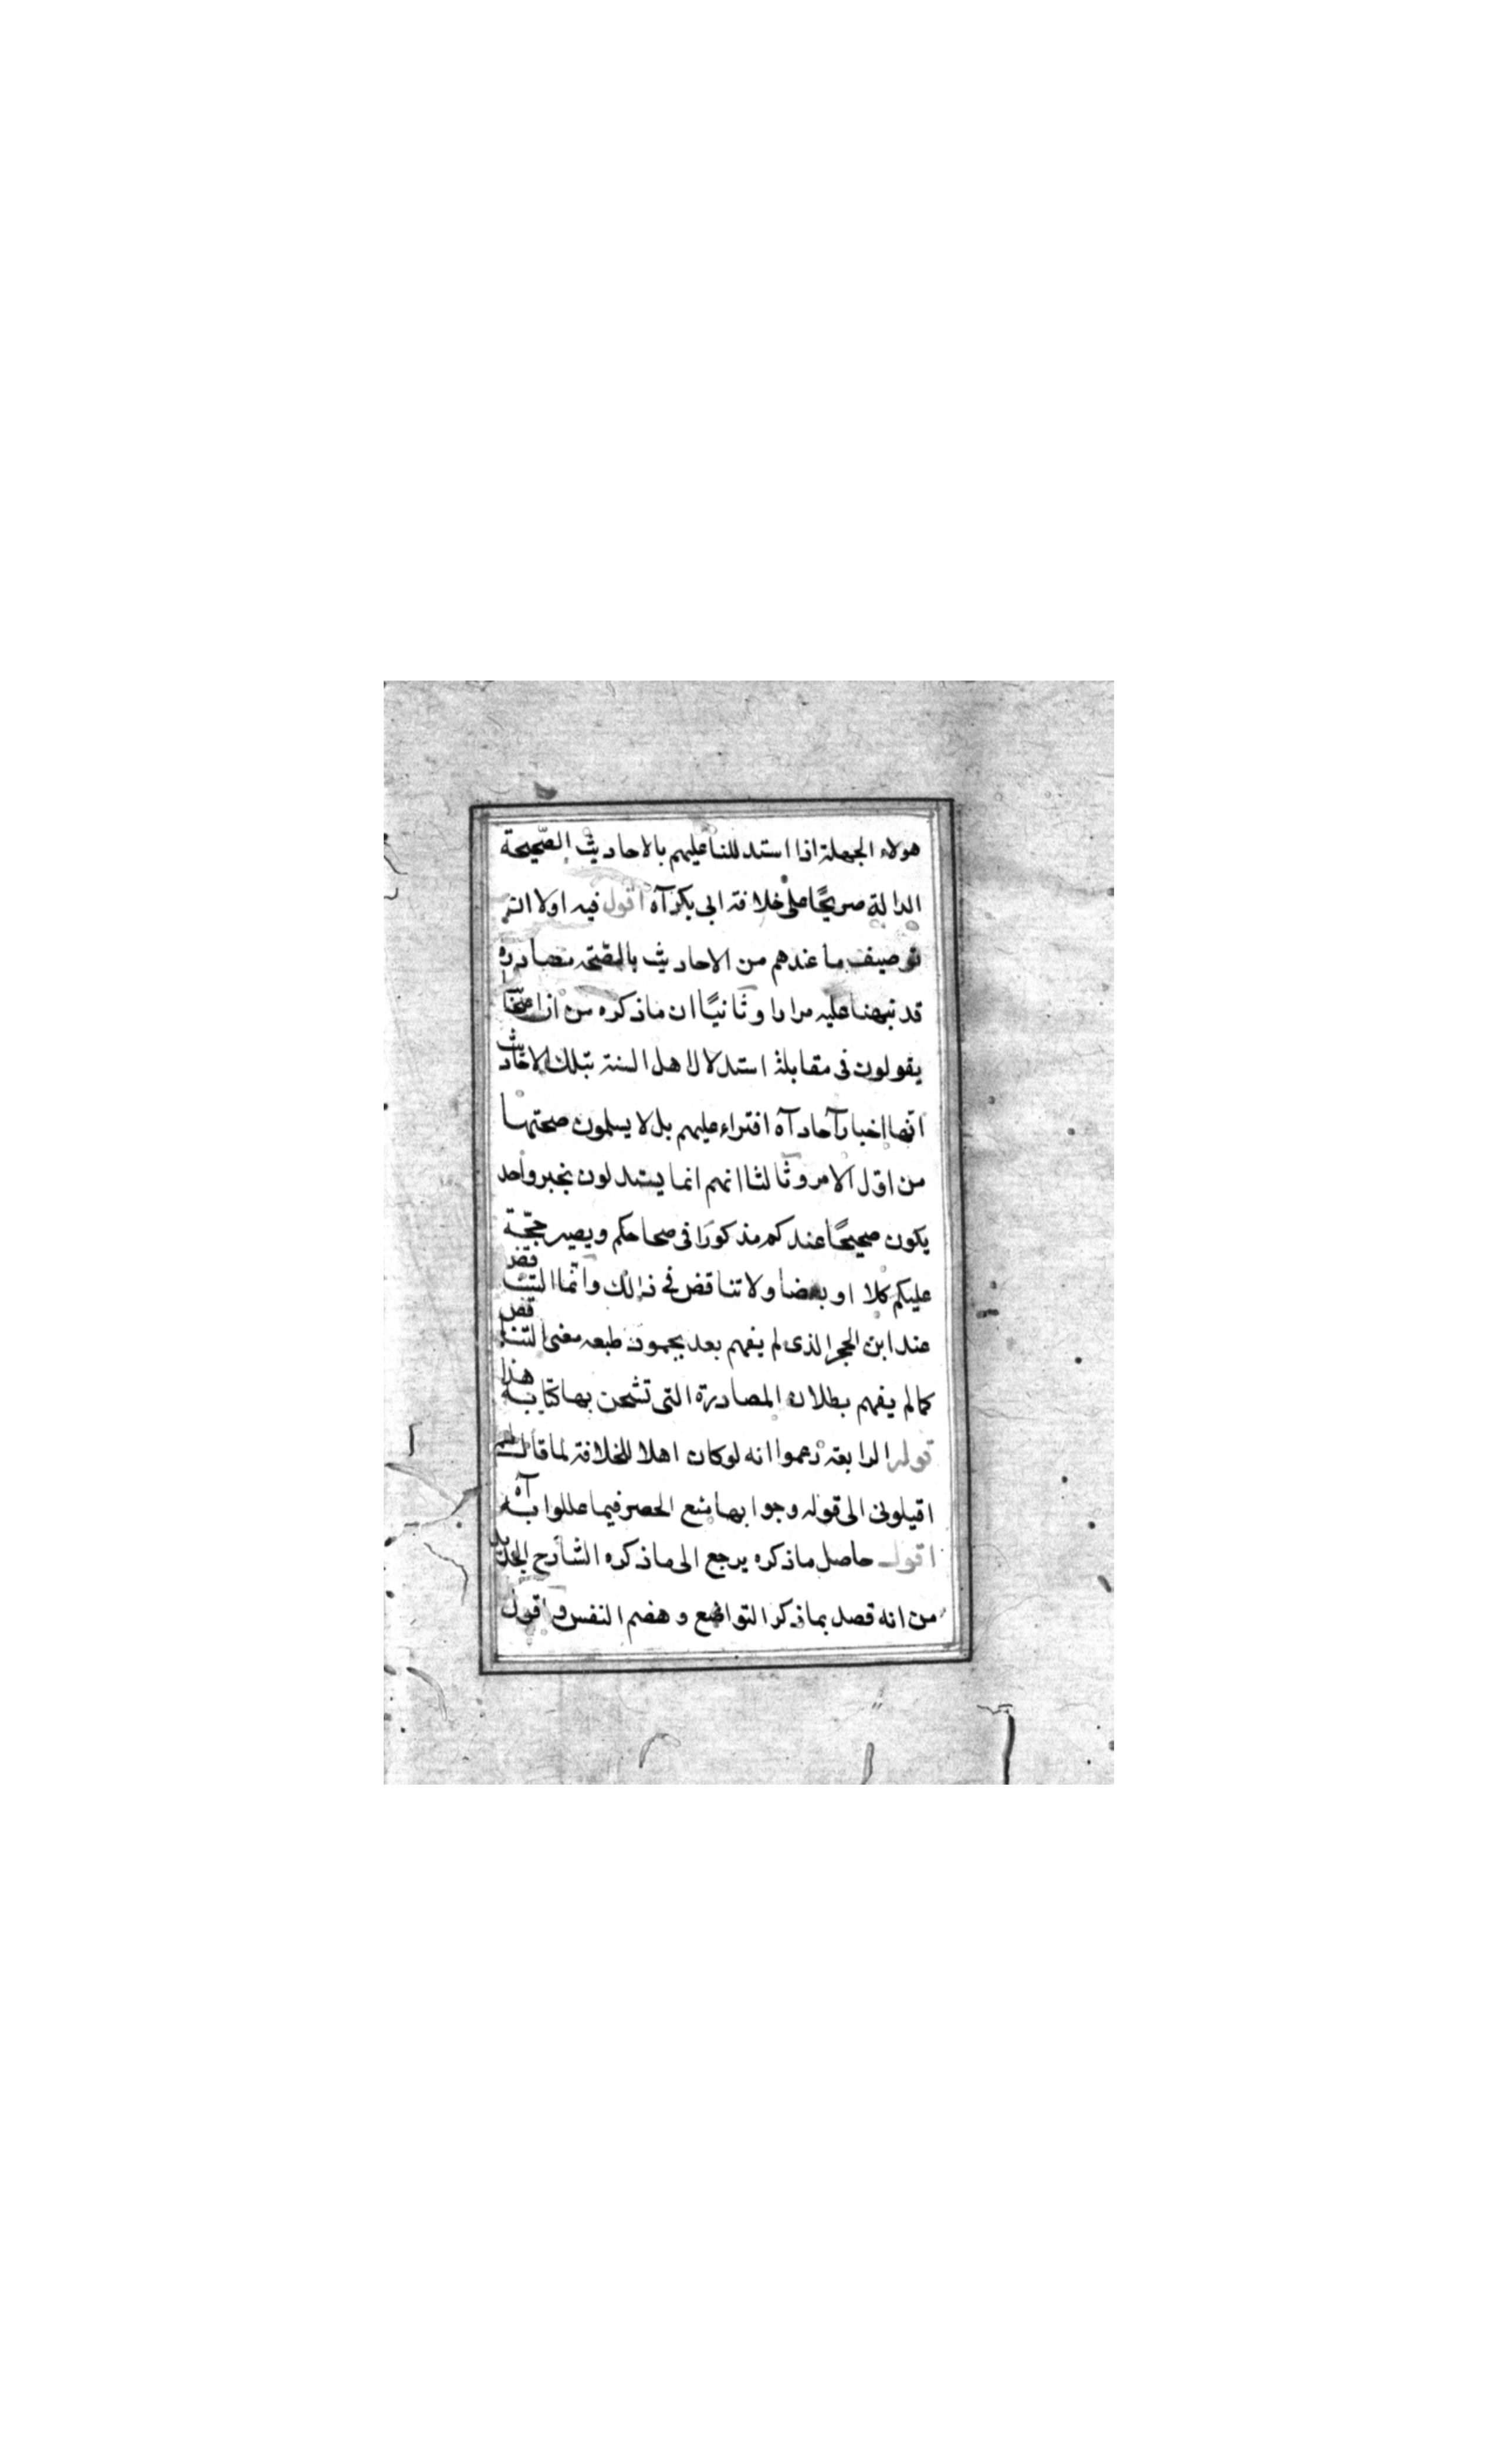 هولاء الجهلة اذا استدللنا عليهم بالاحاديث الصّحيحة
الدالة صريحًا على خلافة ابى بكر آه اقول فيه اولا ان
توصيف ما عندهم من الاحاديث بالصّحّه مصادرة
قد نبهنا عليه مرارا وثانيًا ان ما ذكره من
يقولون فى مقابلة استدلال اهل السنة بتلك الاحاديث
انها اخبار آحاد آه افتراء عليهم بل لا يسلمون صحتها
من اوّل الامر وثالثا انهم انما يستدلون بخبر واحد
يكون صحيحًا عندكم مذكورًا فى صحاحكم ويصير حجّة
عليكم كلا او بعضا ولا تناقض فى ذلك وانّما التناقض
عند ابن الحجر الذى لم يفهم بعد بجمود طبعه معنى التناقض
كما لم يفهم بطلان المصادرة التى تشحن بها كتابه هذا
قوله الرابعة زعموا انه لو كان اهلا للخلافة لما قال لهم
اقيلونى الى قوله وجوابها منع الحصر فيما عللوا به آه
اقول حاصل ما ذكره يرجع الى ما ذكره الشارح الجديد
من انه قصد بما ذكر التواضع وهضم النفس واقول